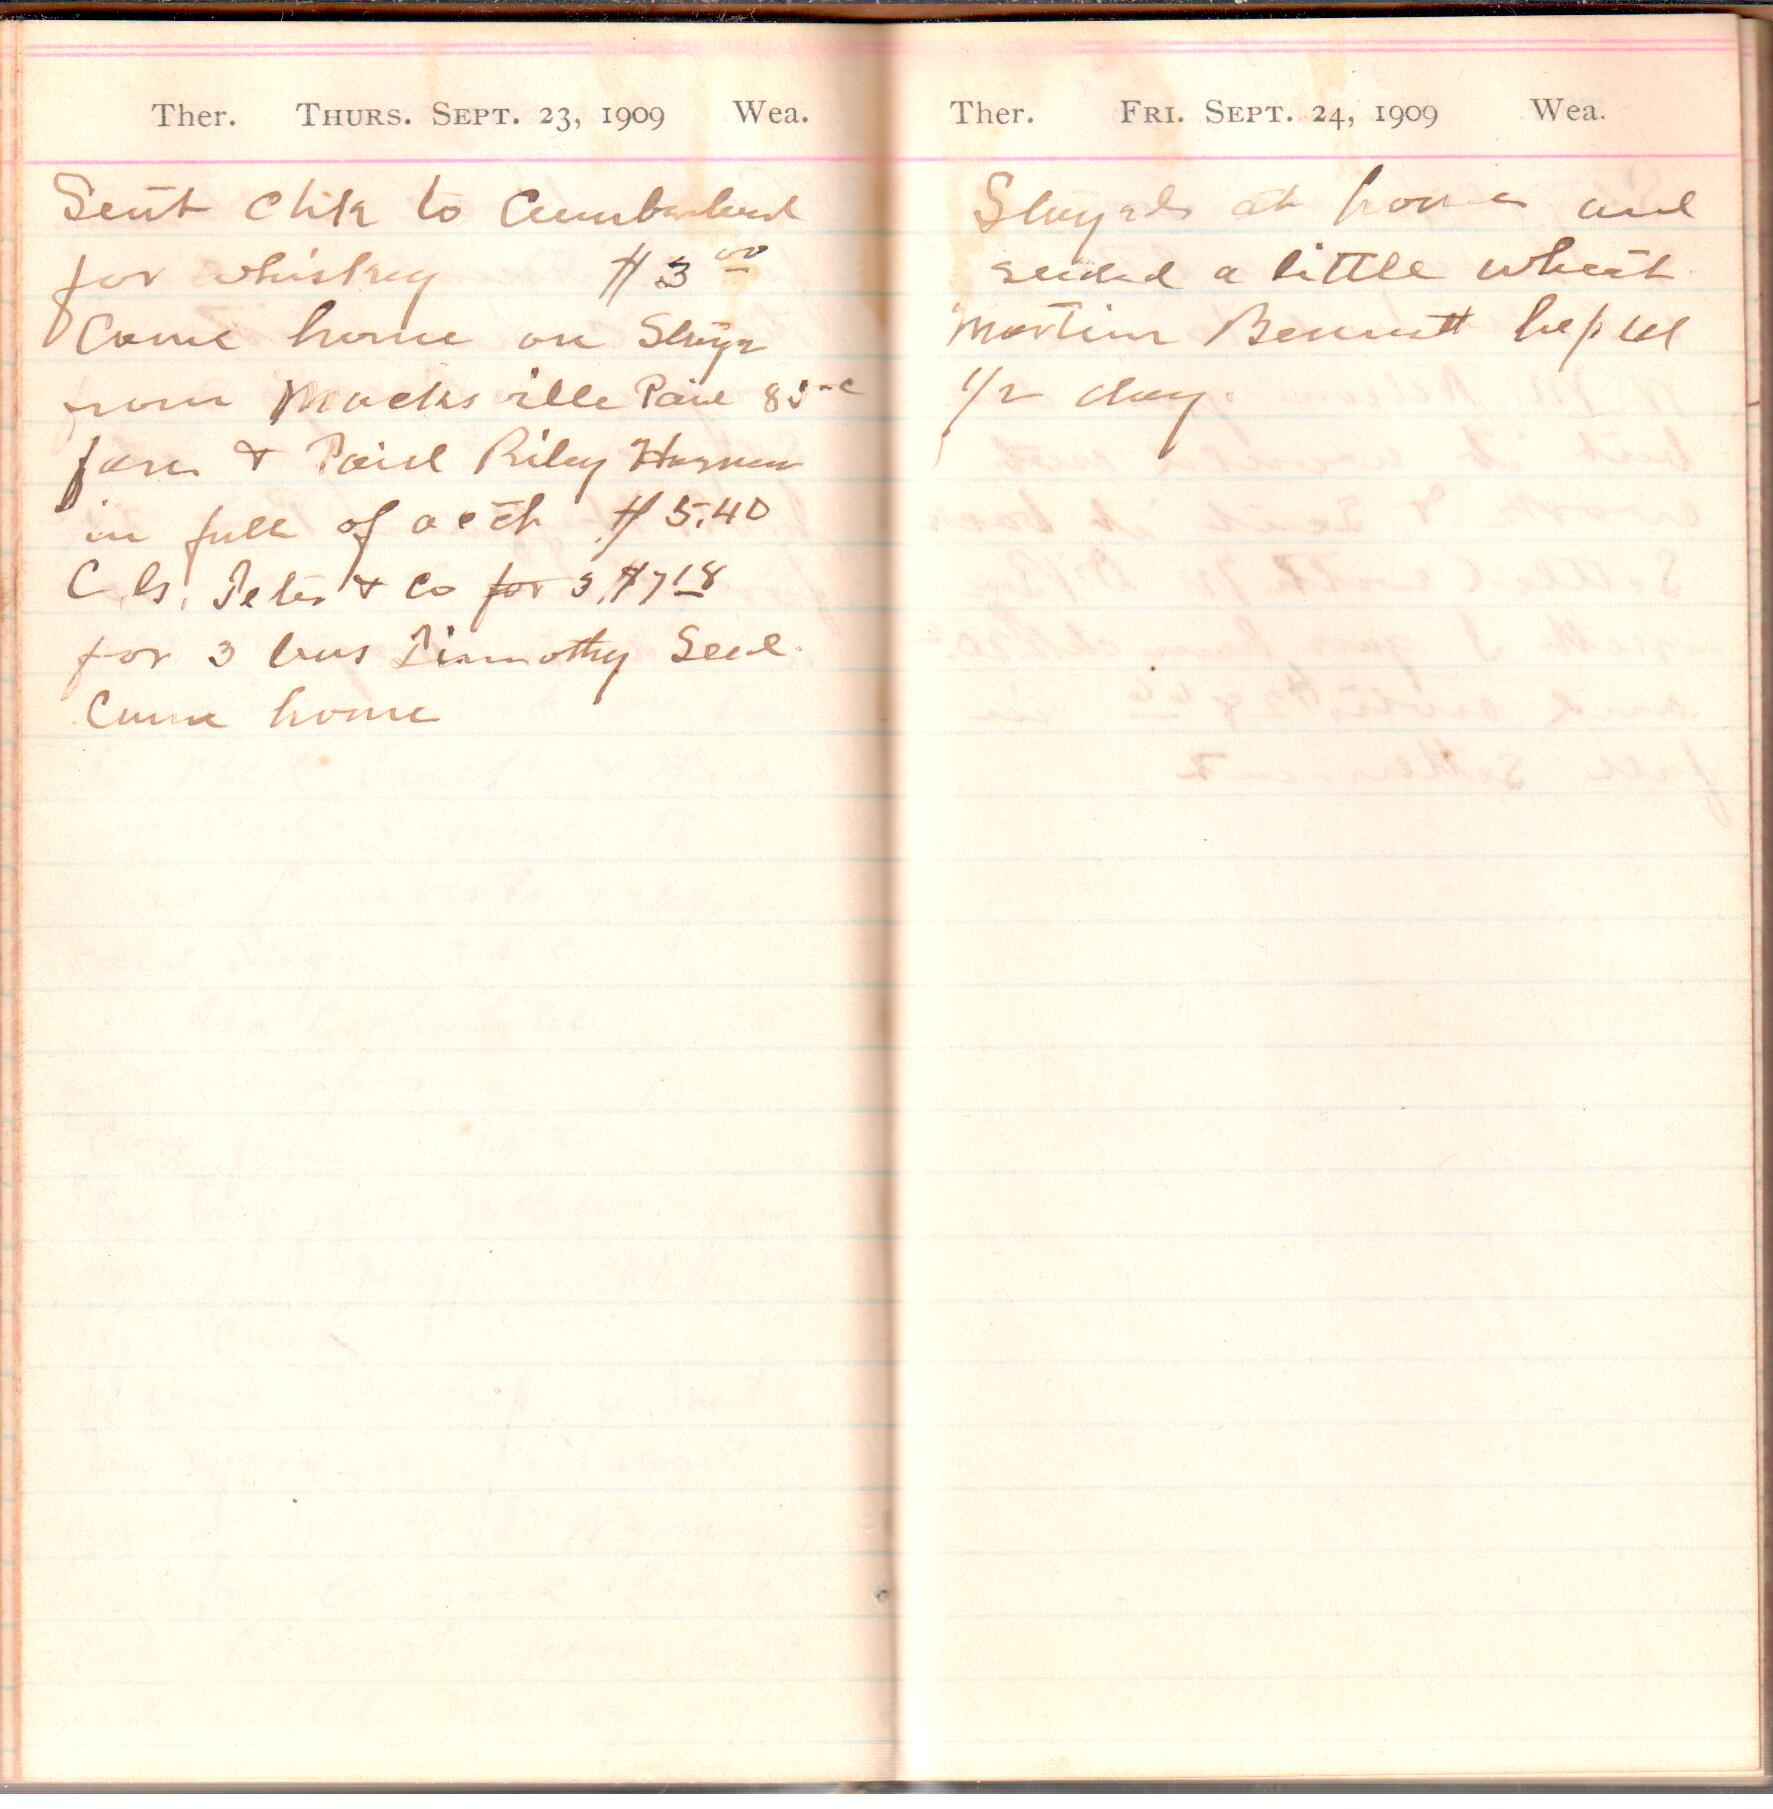 Ther. THURS. SEPT. 23, 1909 Wea.
Sent to Cumberland
for whiskey $3 00
Came home on Stage
from Macksville Paid
fare & Paid Riley Harman
in full of acct $5.40
C. & Co for 3 $7 18
for 3 bus Timmothy Seed
Came home
Ther. FRI. SEPT. 24, 1909 Wea.
Stayed at home and
seeded a little wheat
Martin Bennett helped
1/2 day.